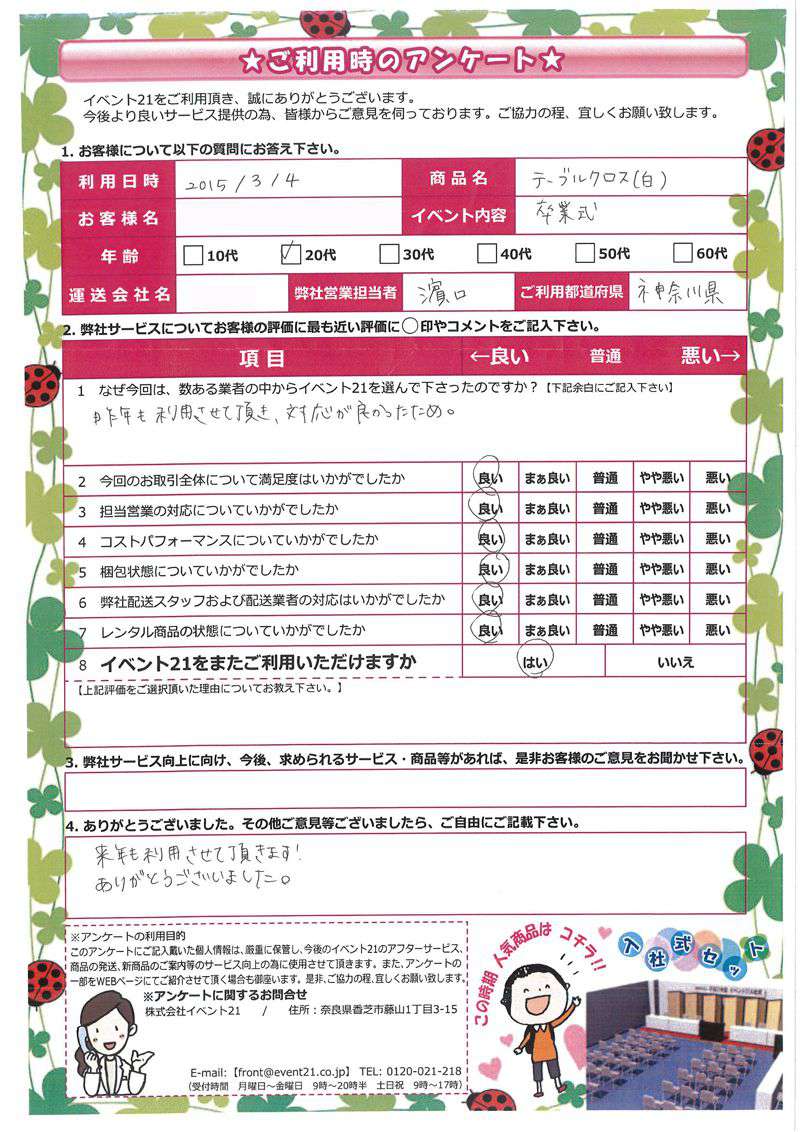 ★ご利用時のアンケート★
イベント21をご利用頂き、誠にありがとうございます。
今後より良いサービス提供の為、皆様からご意見を伺っております。ご協力の程、宜しくお願い致します。
1. お客様について以下の質問にお答え下さい。
利用日時 2015/3/4 商品名 テーブルクロス(白)
お客様名 イベント内容 卒業式
年齢 10代 ✓20代 30代 40代 50代 60代
運送会社名 弊社営業担当者 濱口 ご利用都道府県 神奈川県
2. 弊社サービスについてお客様の評価に最も近い評価に◯印やコメントをご記入下さい。
項目 ←良い 普通 悪い→
1 なぜ今回は、数ある業者の中からイベント21を選んで下さったのですか？【下記余白にご記入下さい】
昨年も利用させて頂き、対応が良かったため。
2 今回のお取引全体について満足度はいかがでしたか 良い まぁ良い 普通 やや悪い 悪い
3 担当営業の対応についていかがでしたか 良い まぁ良い 普通 やや悪い 悪い
4 コストパフォーマンスについていかがでしたか 良い まぁ良い 普通 やや悪い 悪い
5 梱包状態についていかがでしたか 良い まぁ良い 普通 やや悪い 悪い
6 弊社配送スタッフおよび配送業者の対応はいかがでしたか 良い まぁ良い 普通 やや悪い 悪い
7 レンタル商品の状態についていかがでしたか 良い まぁ良い 普通 やや悪い 悪い
8 イベント21をまたご利用いただけますか はい いいえ
【上記評価をご選択頂いた理由についてお教え下さい。】
3. 弊社サービス向上に向け、今後、求められるサービス・商品等があれば、是非お客様のご意見をお聞かせ下さい。
4. ありがとうございました。その他ご意見等ございましたら、ご自由にご記載下さい。
来年も利用させて頂きます!
ありがとうございました。
※アンケートの利用目的
このアンケートにご記入戴いた個人情報は、厳重に保管し、今後のイベント21のアフターサービス、
商品の発送、新商品のご案内等のサービス向上の為に使用させて頂きます。また、アンケートの
一部をWEBページにてご紹介させて頂く場合も御座います。是非、ご協力の程、宜しくお願い致します。
※アンケートに関するお問合せ
株式会社イベント21 / 住所：奈良県香芝市藤山1丁目3-15
E-mail:【front@event21.co.jp】 TEL: 0120-021-218
(受付時間 月曜日～金曜日 9時～20時半 土日祝 9時～17時)
この時期 人気商品は コチラ!!
入社式セット